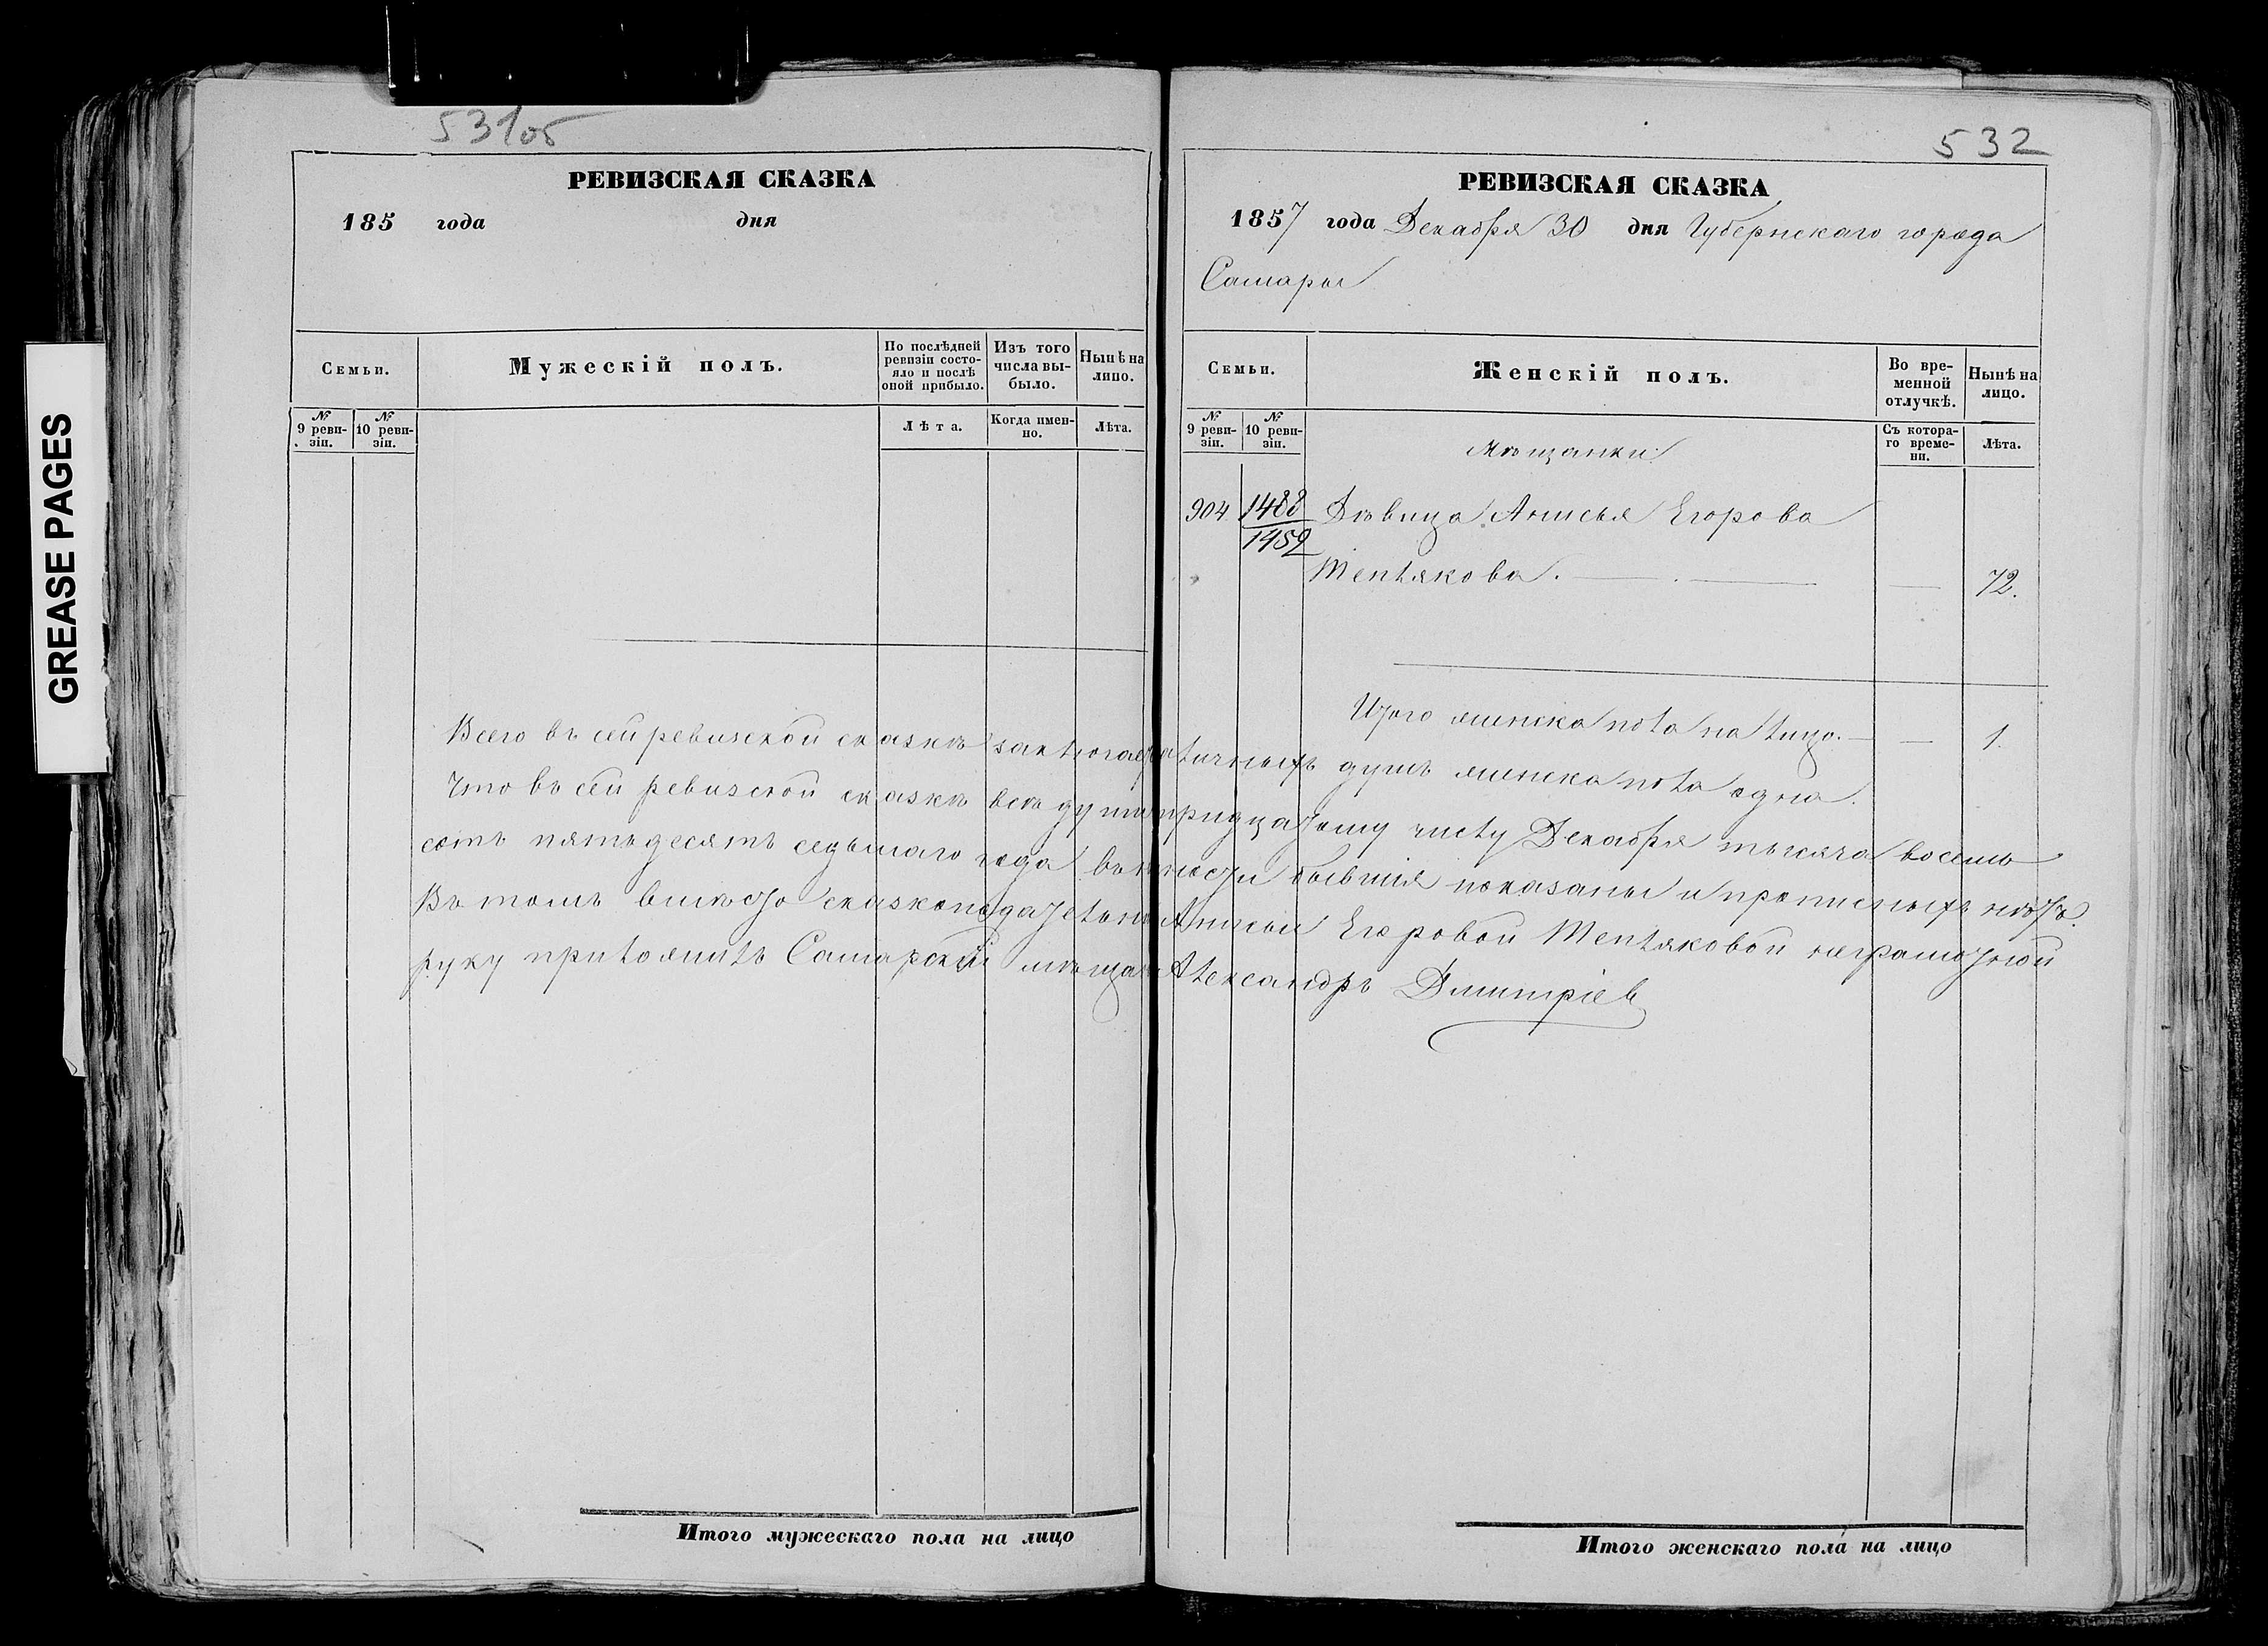 GREASE PAGES
531об
РЕВИЗСКАЯ СКАЗКА
185 года дня
Семьи.
Мужескій полъ.
По послѣдней ревизіи состояло и послѣ оной прибыло.
Изъ того числа выбыло.
Нынѣ на лицо.
№ 9 ревизіи.
№ 10 ревизіи.
Лѣта.
Когда именно.
Лѣта.
532
РЕВИЗСКАЯ СКАЗКА
1857 года Декабря 30 дня Губернскаго города
Самары
Семьи.
Женскій полъ.
Во временной отлучкѣ.
Нынѣ на лицо.
№ 9 ревизіи.
№ 10 ревизіи.
Съ котораго времени.
Лѣта.
Мѣщанки:
904 1488 Дѣвица Анисья Егорова
1459
Теплякова. — — 72.
Итого женска пола на лицо. — — 1.
Всего въ сей ревизской сказкѣ заключается личныхъ душъ женска пола одна.
Что въ сей ревизской сказкѣ всѣ души тридцатому числу Декабря тысяча восемь
сотъ пятьдесятъ седьмаго года въ нличности бывшія показаны и прописныхъ нѣтъ.
Въ томъ вмѣсто сказкоподательницы Анисьи Егоровой Тепляковой неграмотной
руку приложилъ Самарскій мѣщанинъ Александръ Дмитріев
Итого мужескаго пола на лицо
Итого женскаго пола на лицо